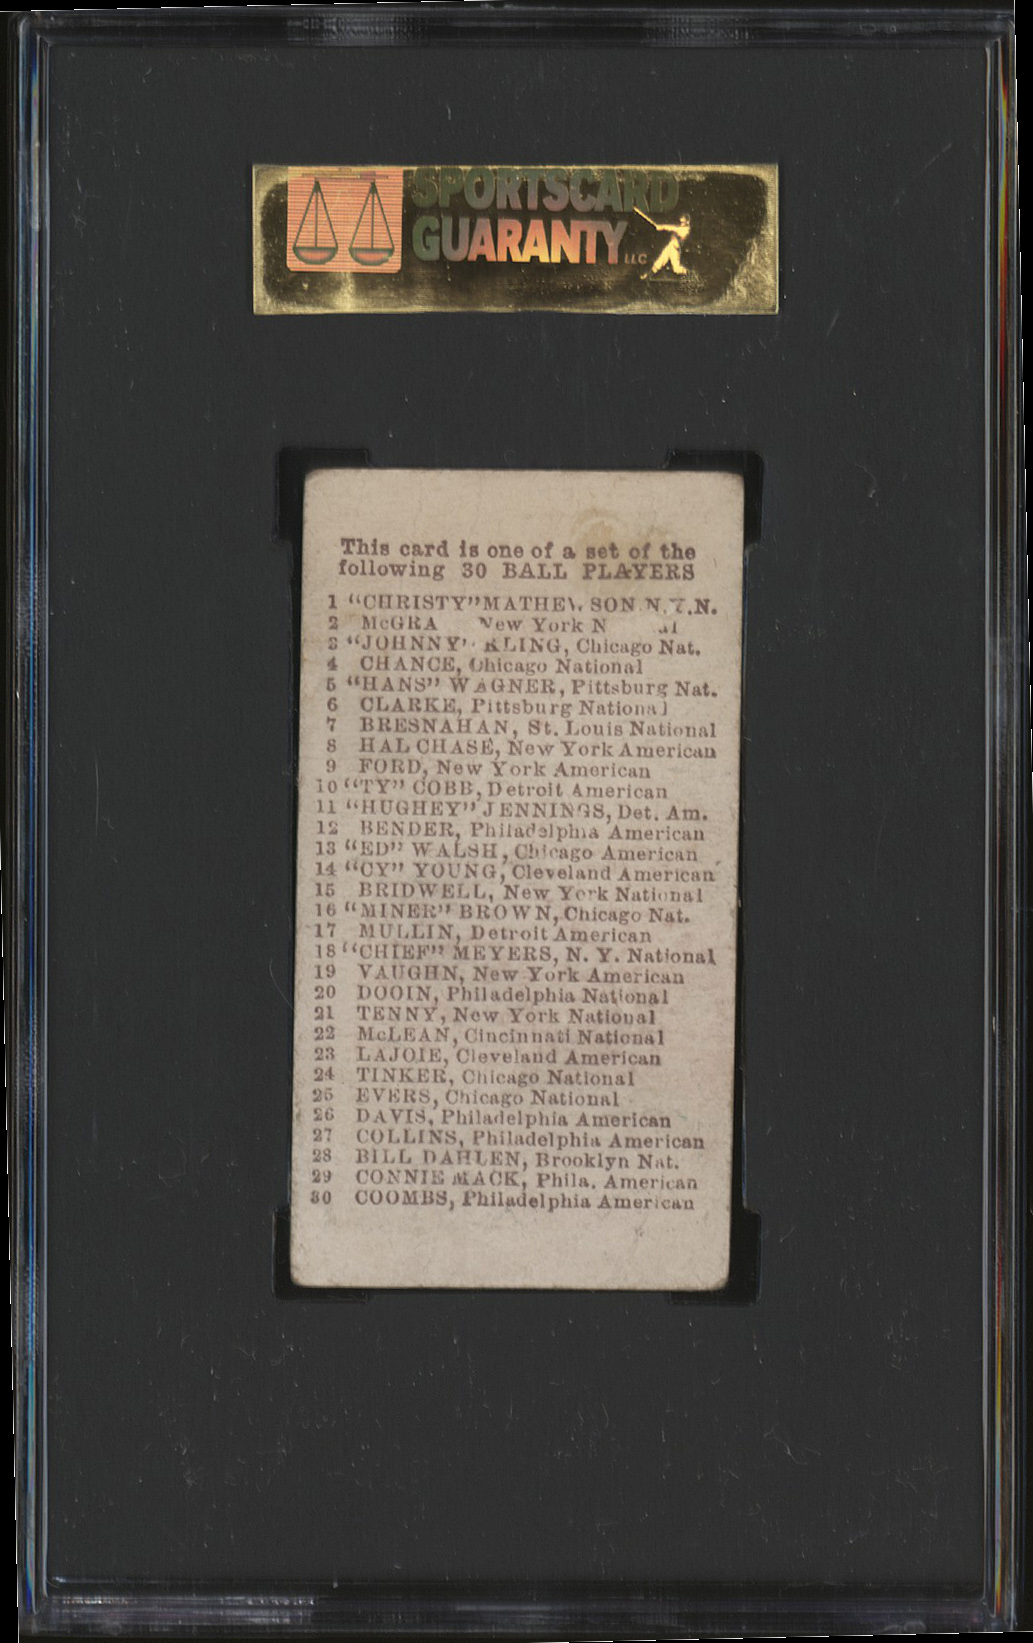 SPORTSCARD
GUARANTY LLC
This card is one of a set of the
following 30 BALL PLAYERS
1 "CHRISTY" MATHEWSON N.Y.N.
2 McGRA New York N al
3 "JOHNNY" KLING, Chicago Nat.
4 CHANCE, Chicago National
5 "HANS" WAGNER, Pittsburg Nat.
6 CLARKE, Pittsburg National
7 BRESNAHAN, St. Louis National
8 HAL CHASE, New York American
9 FORD, New York American
10 "TY" COBB, Detroit American
11 "HUGHEY" JENNINGS, Det. Am.
12 BENDER, Philadelphia American
13 "ED" WALSH, Chicago American
14 "CY" YOUNG, Cleveland American
15 BRIDWELL, New York National
16 "MINER" BROWN, Chicago Nat.
17 MULLIN, Detroit American
18 "CHIEF" MEYERS, N. Y. National
19 VAUGHN, New York American
20 DOOIN, Philadelphia National
21 TENNY, New York National
22 McLEAN, Cincinnati National
23 LAJOIE, Cleveland American
24 TINKER, Chicago National
25 EVERS, Chicago National
26 DAVIS, Philadelphia American
27 COLLINS, Philadelphia American
28 BILL DAHLEN, Brooklyn Nat.
29 CONNIE MACK, Phila. American
30 COOMBS, Philadelphia American